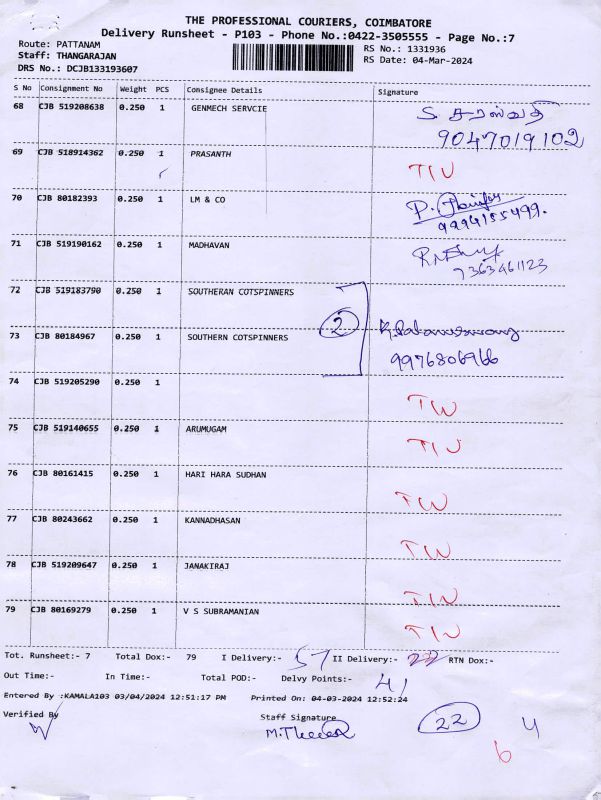 THE PROFESSIONAL COURIERS, COIMBATORE
Delivery Runsheet - P103 - Phone No.:0422-3505555 - Page No.:7
Route: PATTANAM
RS No.: 1331936
Staff: THANGARAJAN
RS Date: 04-Mar-2024
DRS No.: DCJB133193607
S No Consignment No Weight PCS Consignee Details Signature
68 CJB 519208638 0.250 1 GENMECH SERVCIE S. சரஸ்வதி
9047019102
69 CJB 518914362 0.250 1 PRASANTH TW
70 CJB 80182393 0.250 1 LM & CO P.
9994155499.
71 CJB 519190162 0.250 1 MADHAVAN
7363461123
72 CJB 519183790 0.250 1 SOUTHERAN COTSPINNERS
2
73 CJB 80184967 0.250 1 SOUTHERN COTSPINNERS
9976806966
74 CJB 519205290 0.250 1 TW
75 CJB 519140655 0.250 1 ARUMUGAM TW
76 CJB 80161415 0.250 1 HARI HARA SUDHAN TW
77 CJB 80243662 0.250 1 KANNADHASAN TW
78 CJB 519209647 0.250 1 JANAKIRAJ TW
79 CJB 80169279 0.250 1 V S SUBRAMANIAN TW
Tot. Runsheet:- 7 Total Dox:- 79 I Delivery:- 57 II Delivery:- 22 RTN Dox:-
Out Time:- In Time:- Total POD:- Delvy Points:- 41
Entered By :KAMALA103 03/04/2024 12:51:17 PM Printed On: 04-03-2024 12:52:24
Verified By Staff Signature 22 4
6